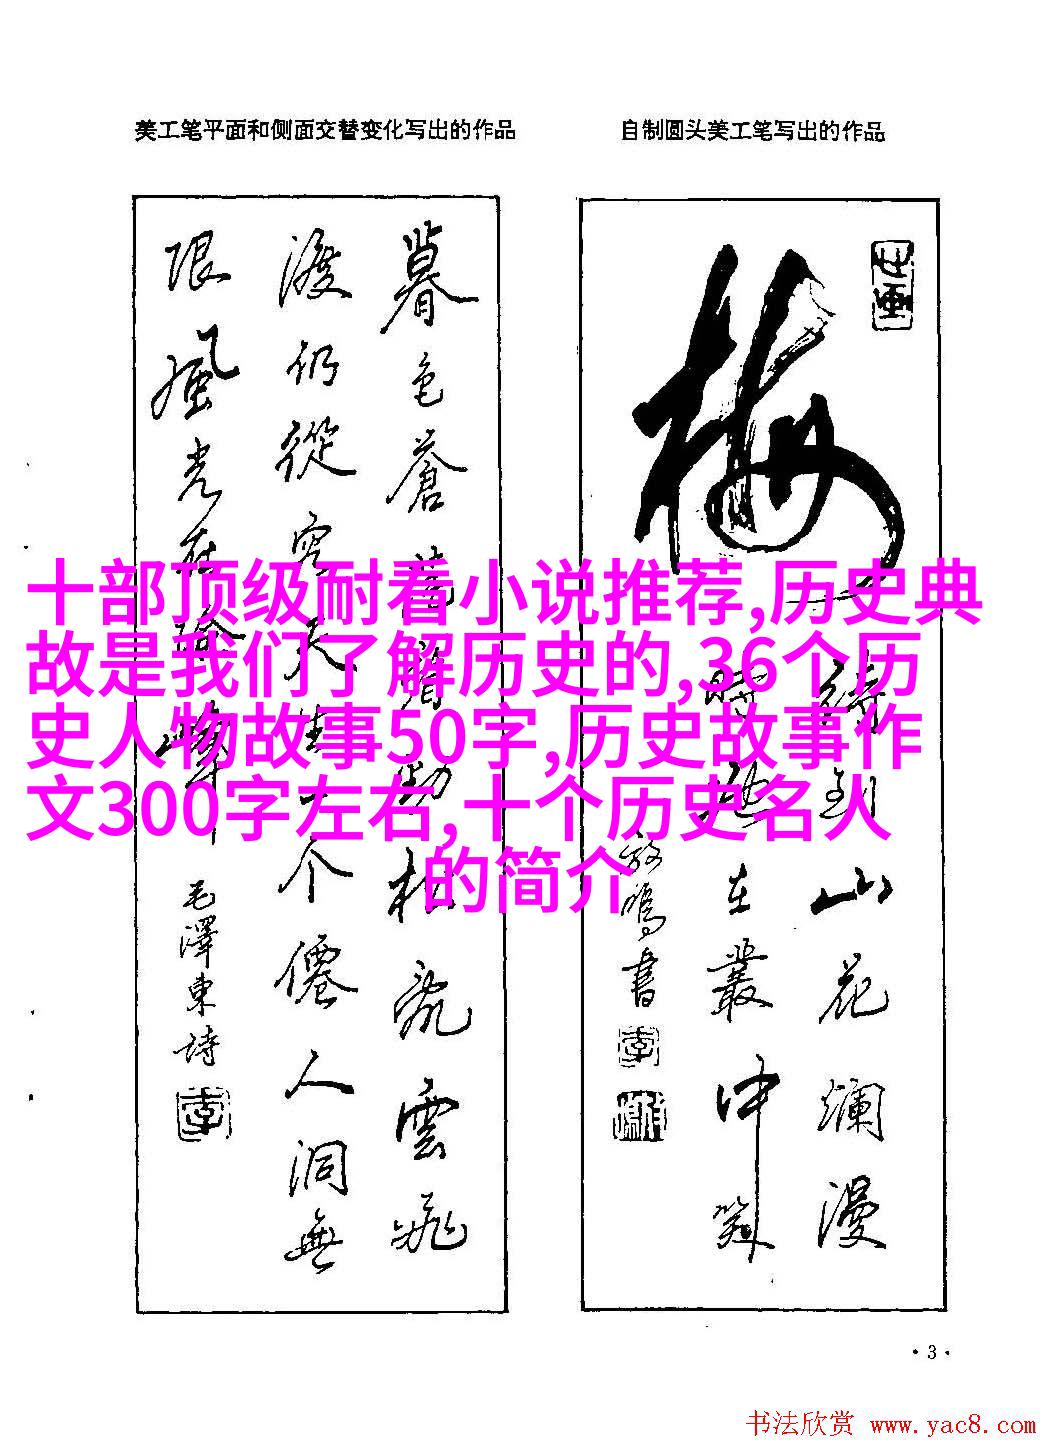 美工笔平面和侧面交替变化写出的作品
自制圆头美工笔写出的作品
暮色苍茫看劲松乱雲飛
渡仍從容天生一个僊人洞無
限風光在險峰
毛澤東詩
梅
待到山花爛漫
時她在叢中笑
啟鳴書
十部顶级耐看小说推荐,历史典
故是我们了解历史的,36个历
史人物故事50字,历史故事作
文300字左右,十个历史名人
的简介
·3·
书法欣赏 www.yac8.com